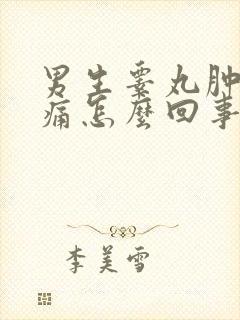 男生睾丸肿
痛怎麼回事
李美雪